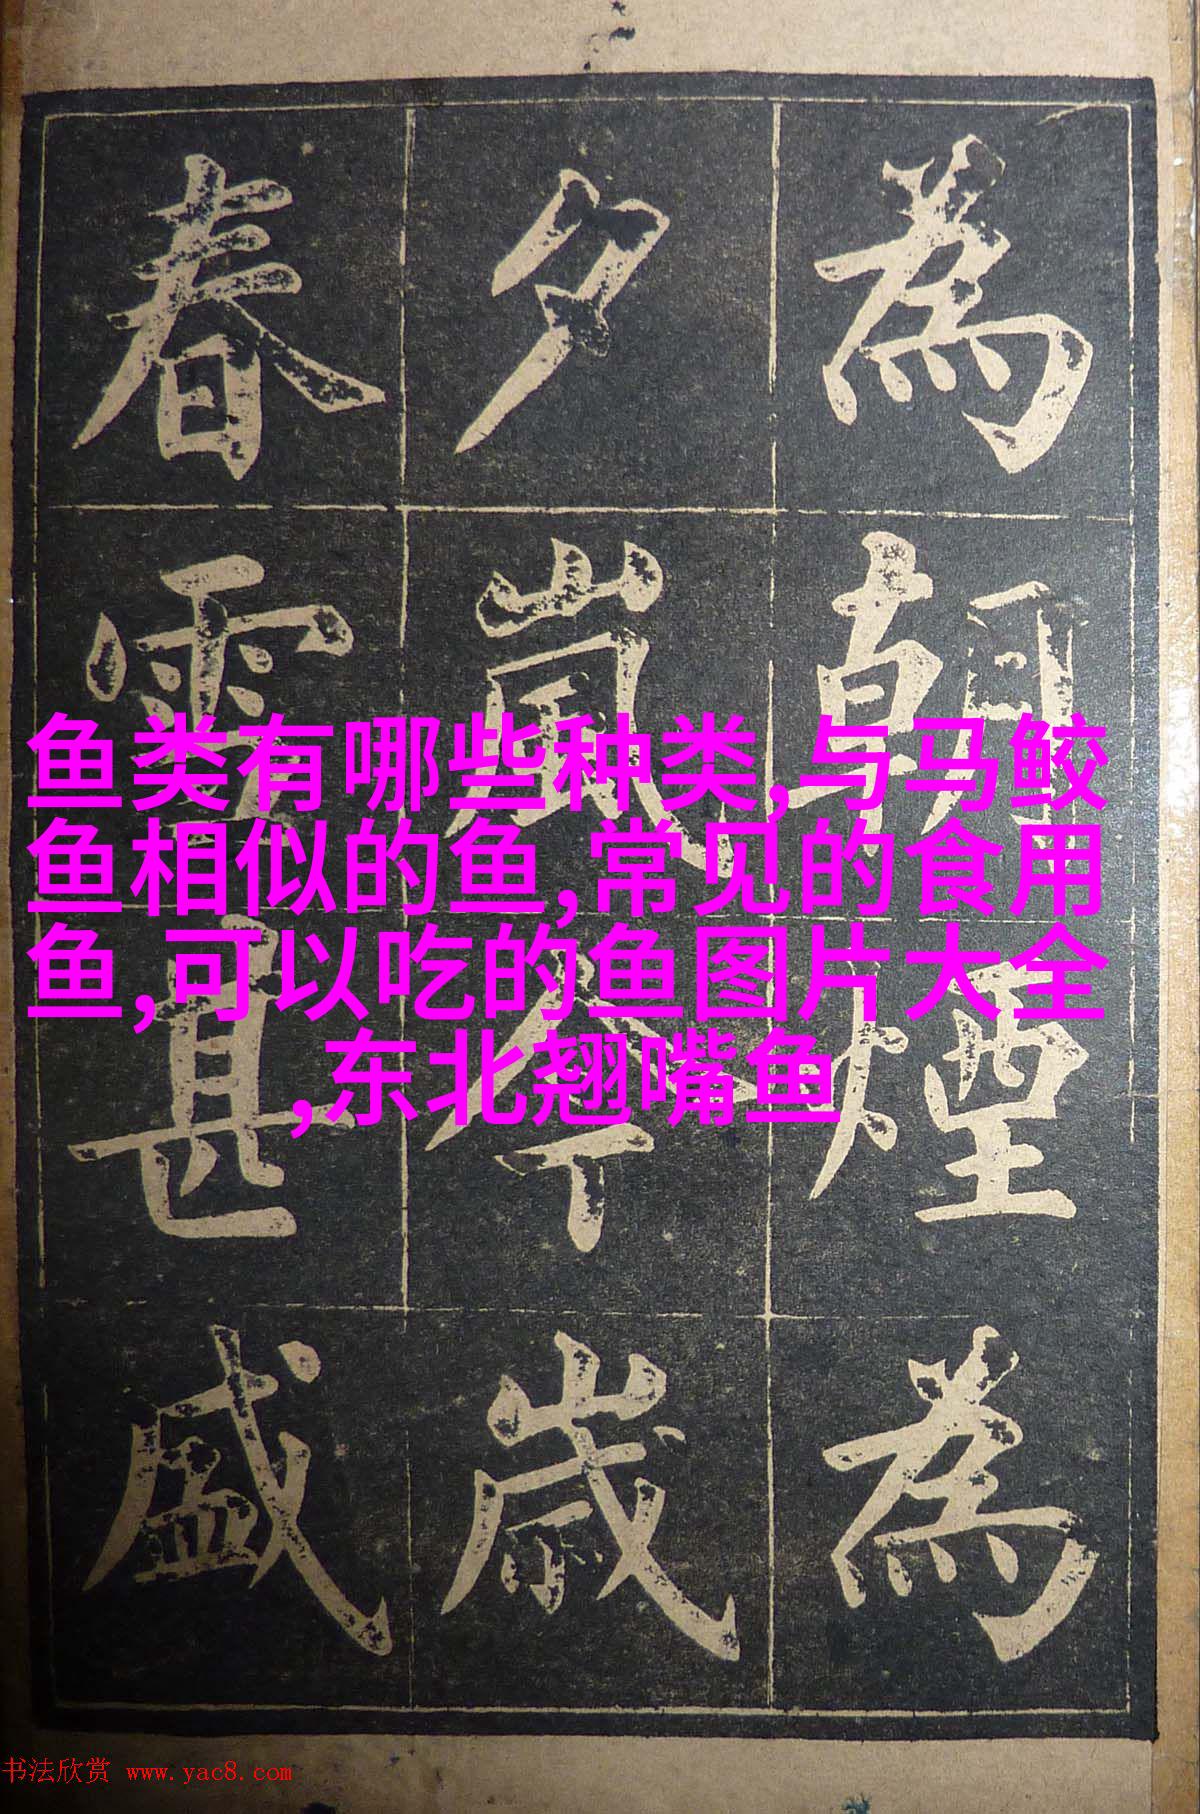 鱼类有哪些种类,与马鲛
鱼相似的鱼,常见的食用
鱼,可以吃的鱼图片大全
,东北翘嘴鱼
為朝煙為
夕嵐今歲
春雪甚盛
书法欣赏 www.yac8.com